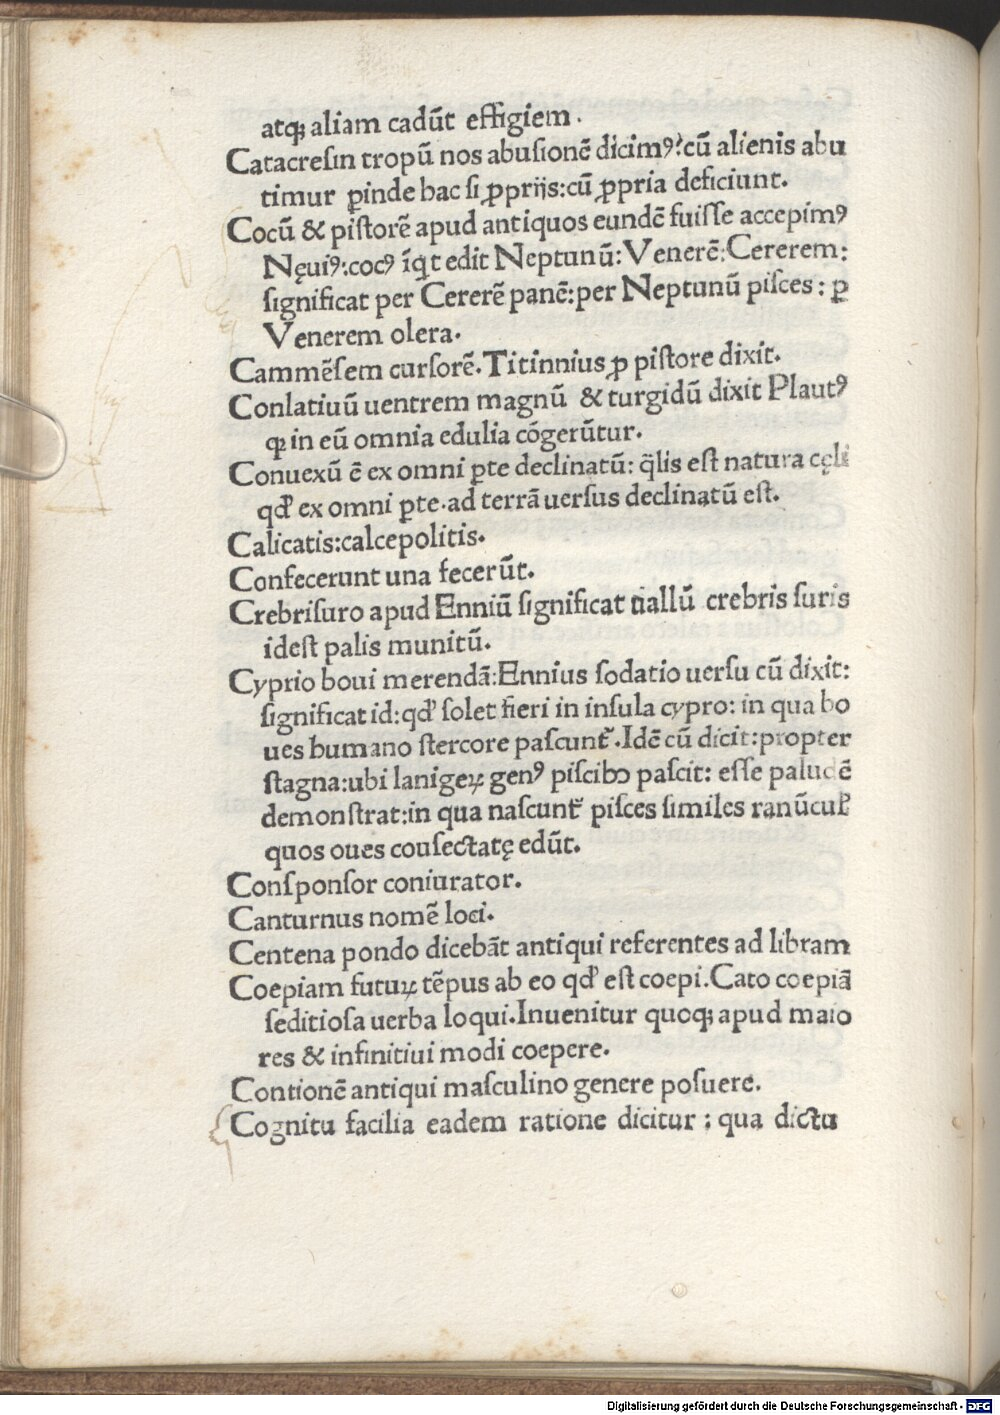 atqꝫ aliam cadūt effigiem.
Catacresin tropū nos abusionē dicimꝰ: cū alienis abu
timur ꝑinde bac si ꝓprijs: cū ꝓpria deficiunt.
Cocū & pistorē apud antiquos eundē fuisse accepimꝰ
Nęuiꝰ: cocꝰ īqt edit Neptunū: Venerē: Cererem:
significat per Cererē panē: per Neptunū pisces: ꝑ
Venerem olera.
Cammēsem cursorē. Titinnius ꝓ pistore dixit.
Conlatiuū uentrem magnū & turgidū dixit Plautꝰ
ꝙ in eū omnia edulia cōgerūtur.
Conuexū ē ex omni ꝑte declinatū: q̄lis est natura cęli
qđ ex omni ꝑte. ad terrā uersus declinatū est.
Calicatis: calcepolitis.
Confecerunt una fecerūt.
Crebrisuro apud Enniū significat uallū crebris suris
idest palis munitū.
Cyprio boui merendā: Ennius sodatio uersu cū dixit:
significat id: qđ solet fieri in insula cypro: in qua bo
ues bumano stercore pascunt᷑. Idē cū dicit: propter
stagna: ubi lanigeꝝ genꝰ piscibɔ pascit: esse paludē
demonstrat: in qua nascunt᷑ pisces similes ranūcul᷑
quos oues cousectatę edūt.
Consponsor coniurator.
Canturnus nomē loci.
Centena pondo dicebāt antiqui referentes ad libram
Coepiam futuꝝ tēpus ab eo qđ est coepi. Cato coepiā
seditiosa uerba loqui. Inuenitur quoqꝫ apud maio
res & infinitiui modi coepere.
Contionē antiqui masculino genere posuere.
Cognitu facilia eadem ratione dicitur: qua dictu
Digitalisierung gefördert durch die Deutsche Forschungsgemeinschaft - DFG